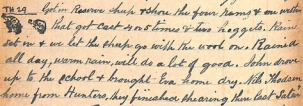 TH 29 Got in Reserve sheep & shore the four rams & one wether
that got cast 4 or 5 times & two noggets. Rain
set in & we let the sheep go with the wool on. Rained
all day, warm rain, will do a lot of good. John drove
up to the school & brought Eva home dry. Neb. Hodson
home from Hunters, they finished shearing their last Satur